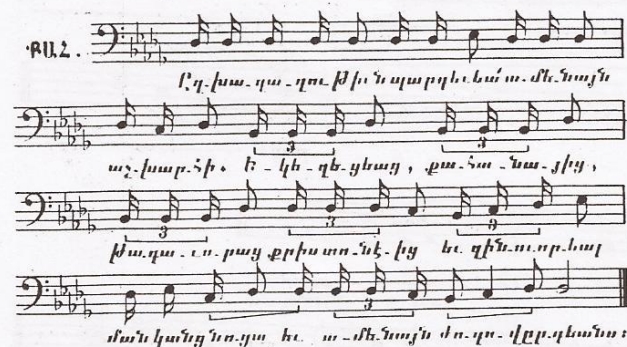 ՔԱՀ.
Ըզ-խա-ղա-ղու-թիւն պարգեւ-եա՛ ա-մե-նայն
աշ-խար-հի. ե-կե-ղե-ցեաց, քա-հա-նա-յից,
թա-գա-ւո-րաց քրիս-տո-նէ-ից եւ զին-ուո-րեալ
ման-կանց նո-ցա եւ ա-մե-նայն ժո-ղո-վըր-դեանս: